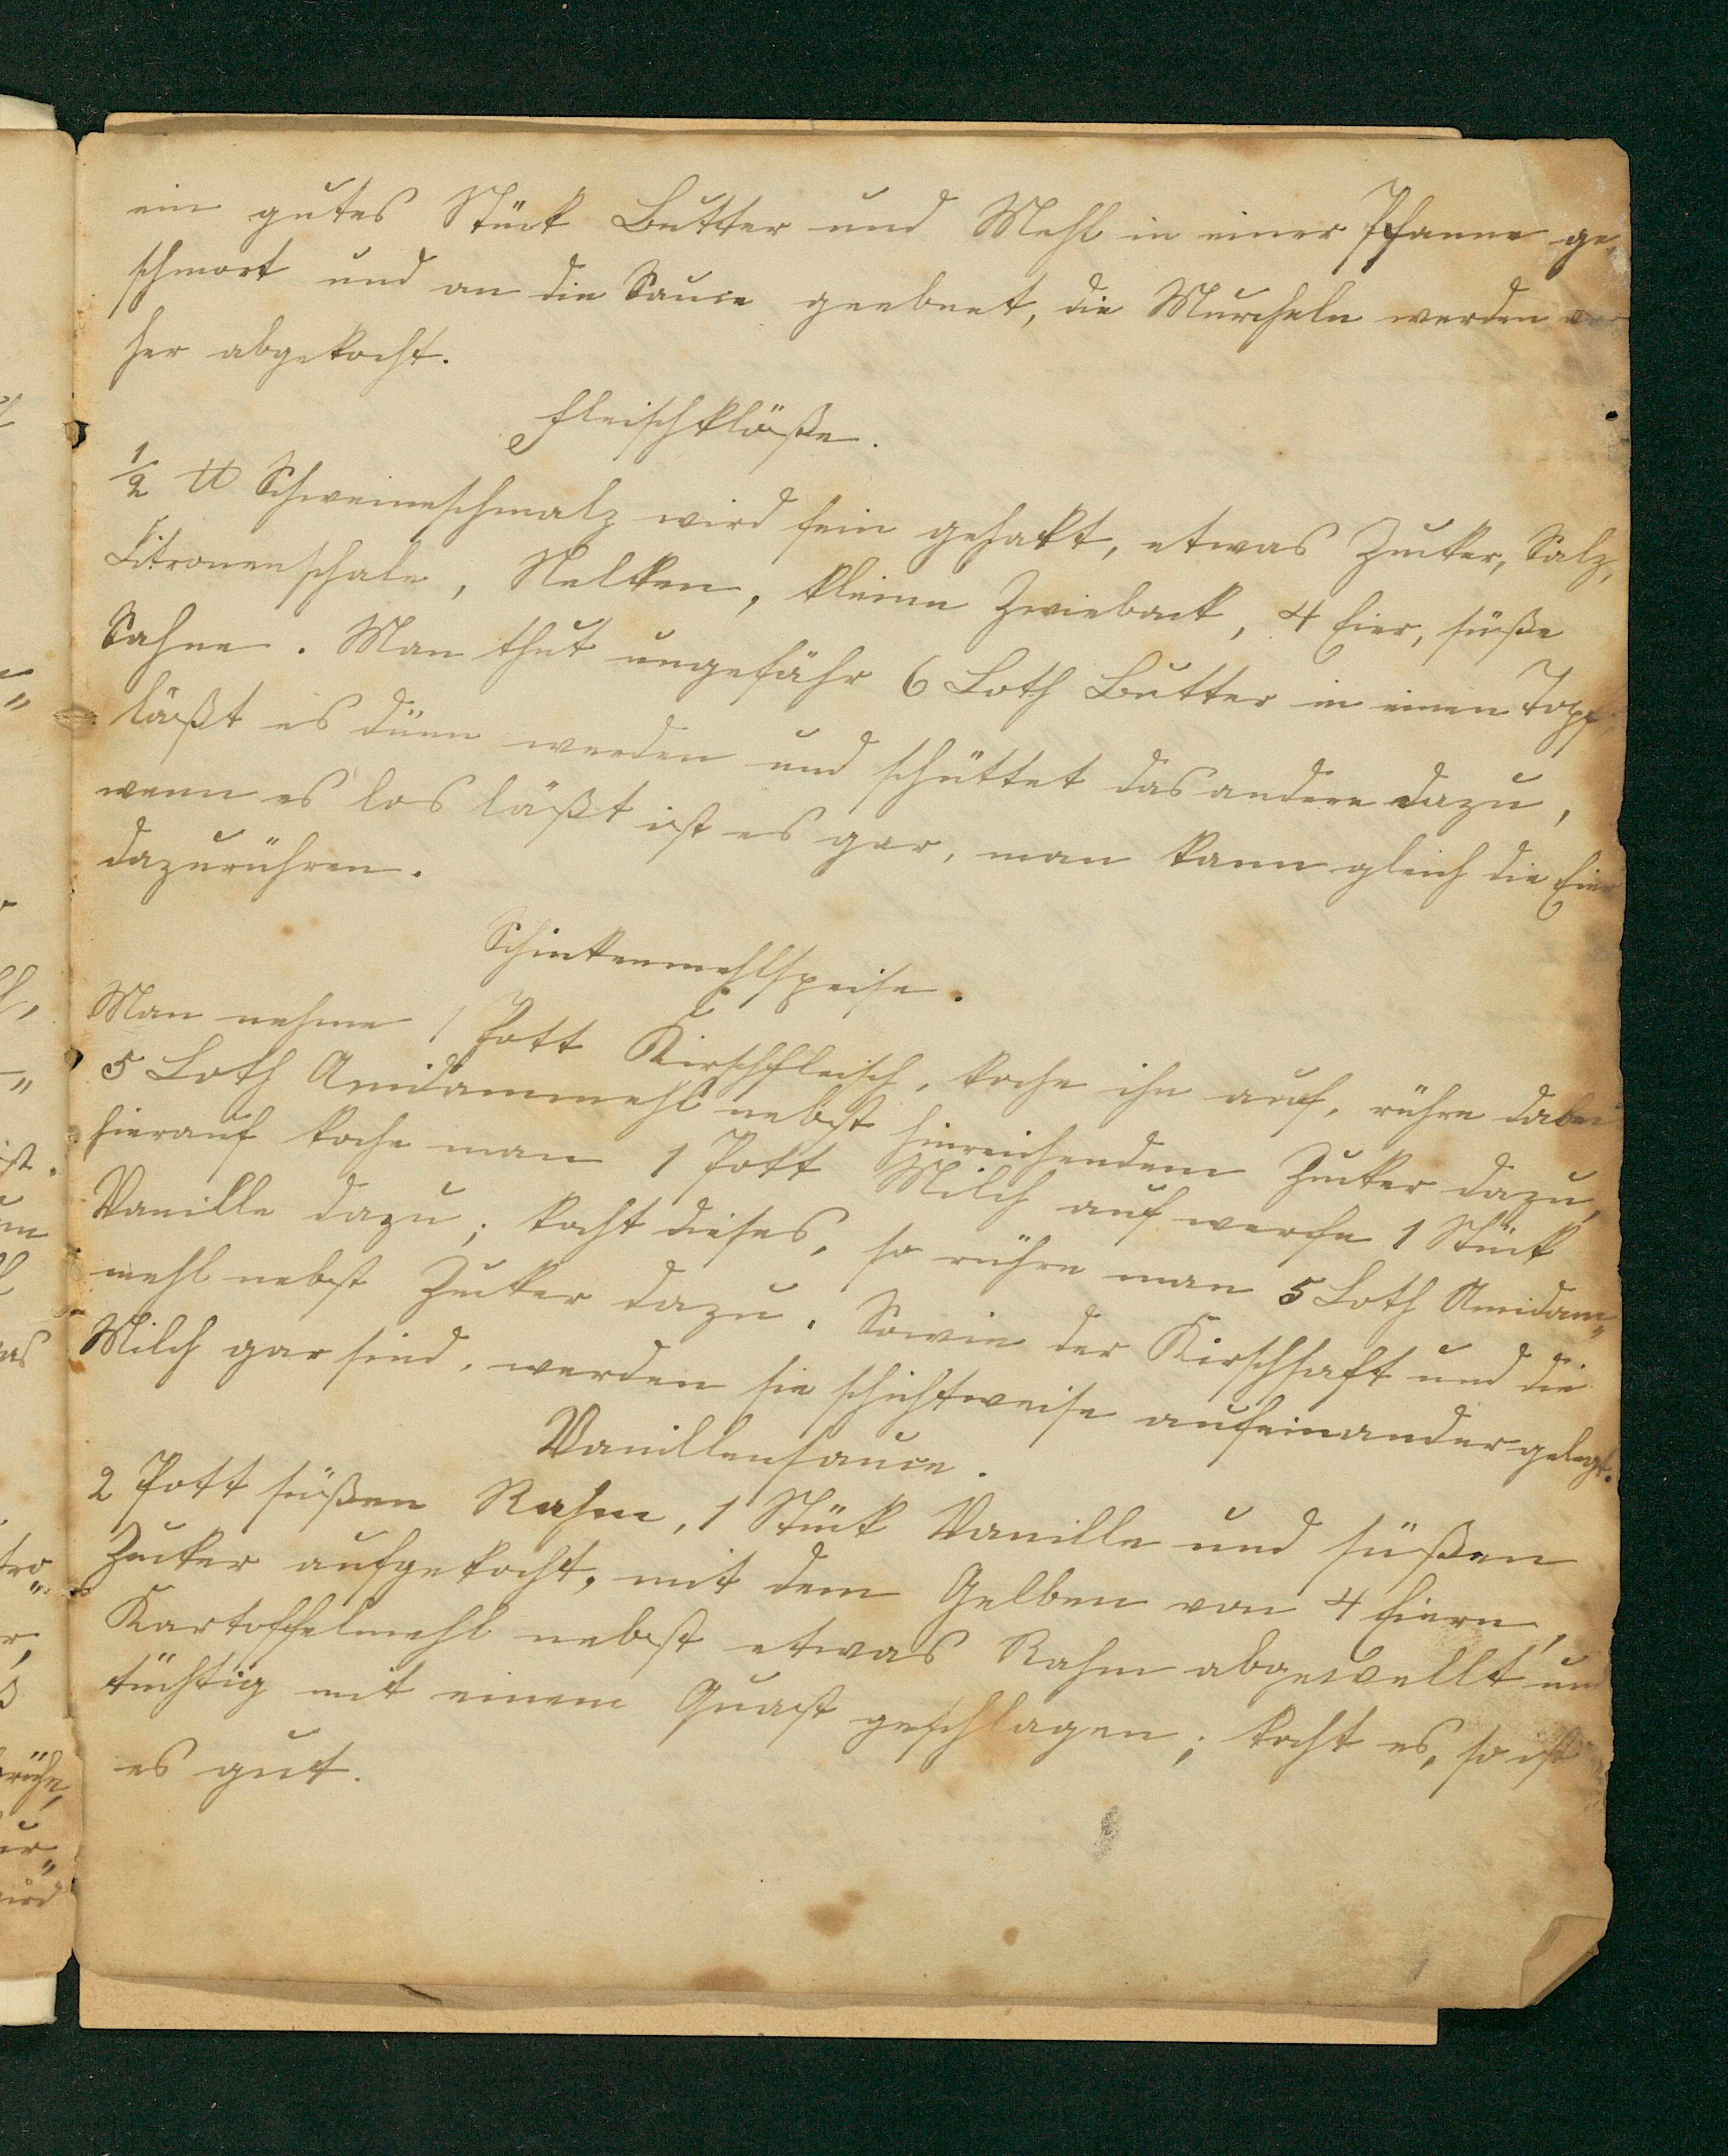 ein gutes Stück Butter und Mehl in einer Pfanne ge„
schmort und an die Sauce geebnet, die Murcheln werden vor
her abgekocht.
Fleischklöße.
1/2 ℔ Schweineschmalz wird fein gehakt, etwas Zucker, Salz,
Citronenschale, Nelken, kleine Zwieback, 4 Eier, süße
Sahne. Man thut ungefähr 6 Loth Butter in einen Topf
läßt es dünn werden und schüttet das andere dazu,
wenn es los läßt ist es gar, man kann gleich die Eier
dazurühren.
Schinkenmehlspeise.
Man nehme 1 Pott Kirschfleisch, koche ihn auf, rühre dabei
5 Loth Amidammehl nebst hinreichendem Zucker dazu,
hierauf koche man 1 Pott Milch auf werfe 1 Stück
Vanille dazu; kocht dieses, so rühre man 5 Loth Amidam„
mehl nebst Zucker dazu. Sowie der Kirschsaft und die
Milch gar sind, werden sie schichtweise aufeinander gelegt.
Vanillensauce.
2 Pott süßen Rahm, 1 Stück Vanille und süßen
Zucker aufgekocht, mit dem Gelben von 4 Eiern,
Kartoffelmehl nebst etwas Rahm abgewellt und
tüchtig mit einem Quast geschlagen; kocht es, so ist
es gut.